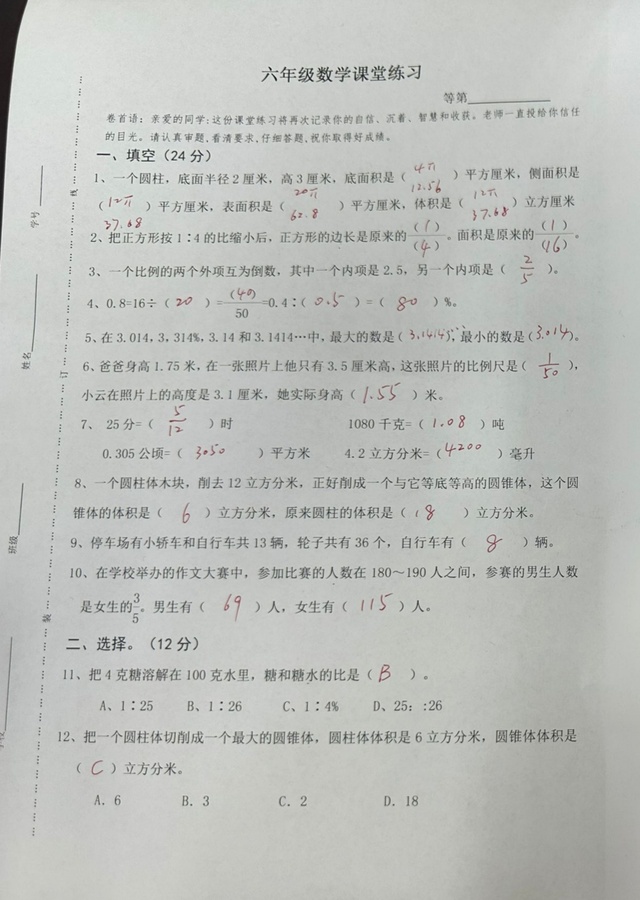 六年级数学课堂练习
等第
卷首语：亲爱的同学：这份课堂练习将再次记录你的自信、沉着、智慧和收获。老师一直投给你信任
的目光。请认真审题，看清要求，仔细答题，祝你取得好成绩。
一、填空（24分）
1、一个圆柱，底面半径2厘米，高3厘米，底面积是（4π 12.56）平方厘米，侧面积是
（12π 37.68）平方厘米，表面积是（20π 62.8）平方厘米，体积是（12π 37.68）立方厘米
2、把正方形按1∶4的比缩小后，正方形的边长是原来的(1)/(4)。面积是原来的(1)/(16)。
3、一个比例的两个外项互为倒数，其中一个内项是2.5，另一个内项是（2/5）。
4、0.8=16÷（20）=(40)/50=0.4∶（0.5）=（80）%。
5、在3.014，3，314%，3.14和3.1414…中，最大的数是（3.1414…），最小的数是（3.014）。
6、爸爸身高1.75米，在一张照片上他只有3.5厘米高，这张照片的比例尺是（1/50），
小云在照片上的高度是3.1厘米，她实际身高（1.55）米。
7、 25分=（5/12）时 1080千克=（1.08）吨
0.305公顷=（3050）平方米 4.2立方分米=（4200）毫升
8、一个圆柱体木块，削去12立方分米，正好削成一个与它等底等高的圆锥体，这个圆
锥体的体积是（6）立方分米，原来圆柱的体积是（18）立方分米。
9、停车场有小轿车和自行车共13辆，轮子共有36个，自行车有（8）辆。
10、在学校举办的作文大赛中，参加比赛的人数在180～190人之间，参赛的男生人数
是女生的3/5。男生有（69）人，女生有（115）人。
二、选择。（12分）
11、把4克糖溶解在100克水里，糖和糖水的比是（B）。
A、1∶25 B、1∶26 C、1∶4% D、25: :26
12、把一个圆柱体切削成一个最大的圆锥体，圆柱体体积是6立方分米，圆锥体体积是
（C）立方分米。
A. 6 B. 3 C. 2 D. 18
学号
姓名
班级
线
订
装